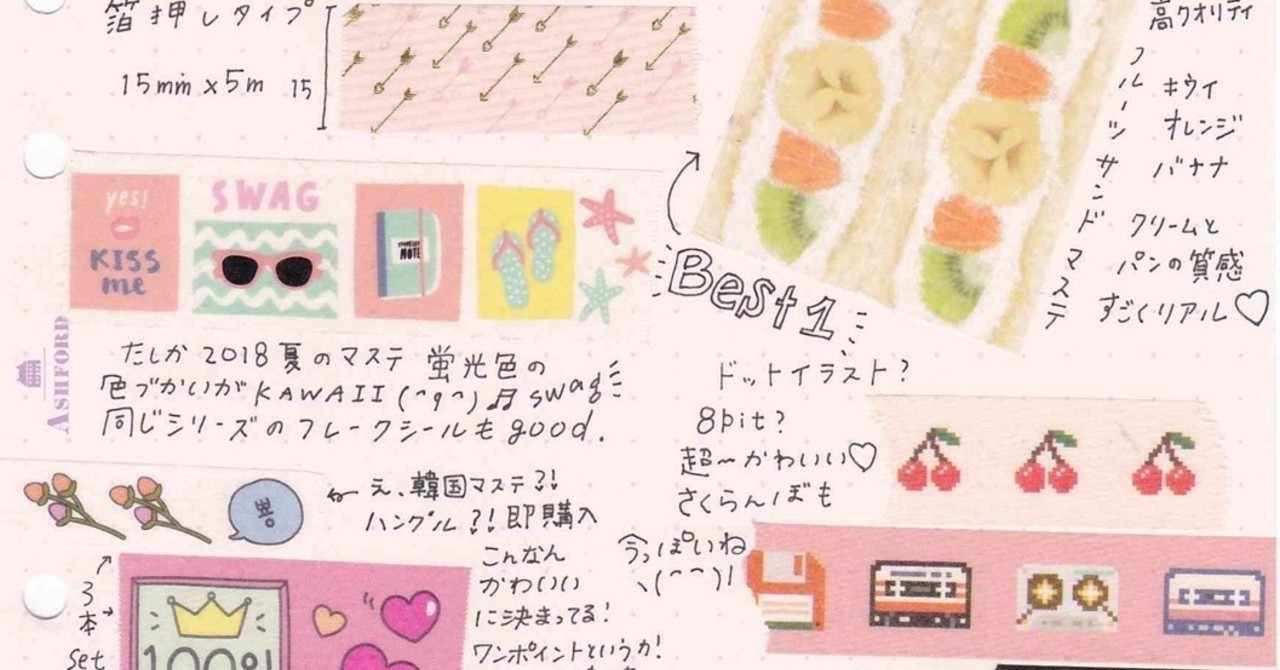 箔押しタイプ
15mm×5m
15
yes!
KISS
me
SWAG
NOTE
ASHFORD
たしか2018夏のマステ 蛍光色の
色づかいがKAWAII(^q^)♬swag
同じシリーズのフレークシールもgood.
뿅
え、韓国マステ?!
ハングル?!即購入
3本
set
100%
こんなん
かわいい
に決まってる!
ワンポイントというか!
高クオリティ
フルーツサンドマステ
キウイ
オレンジ
バナナ
クリームと
パンの質感
すごくリアル♡
Best1
ドットイラスト?
8bit?
超〜かわいい♡
さくらんぼも
今っぽいね
ヽ(^^)ノ